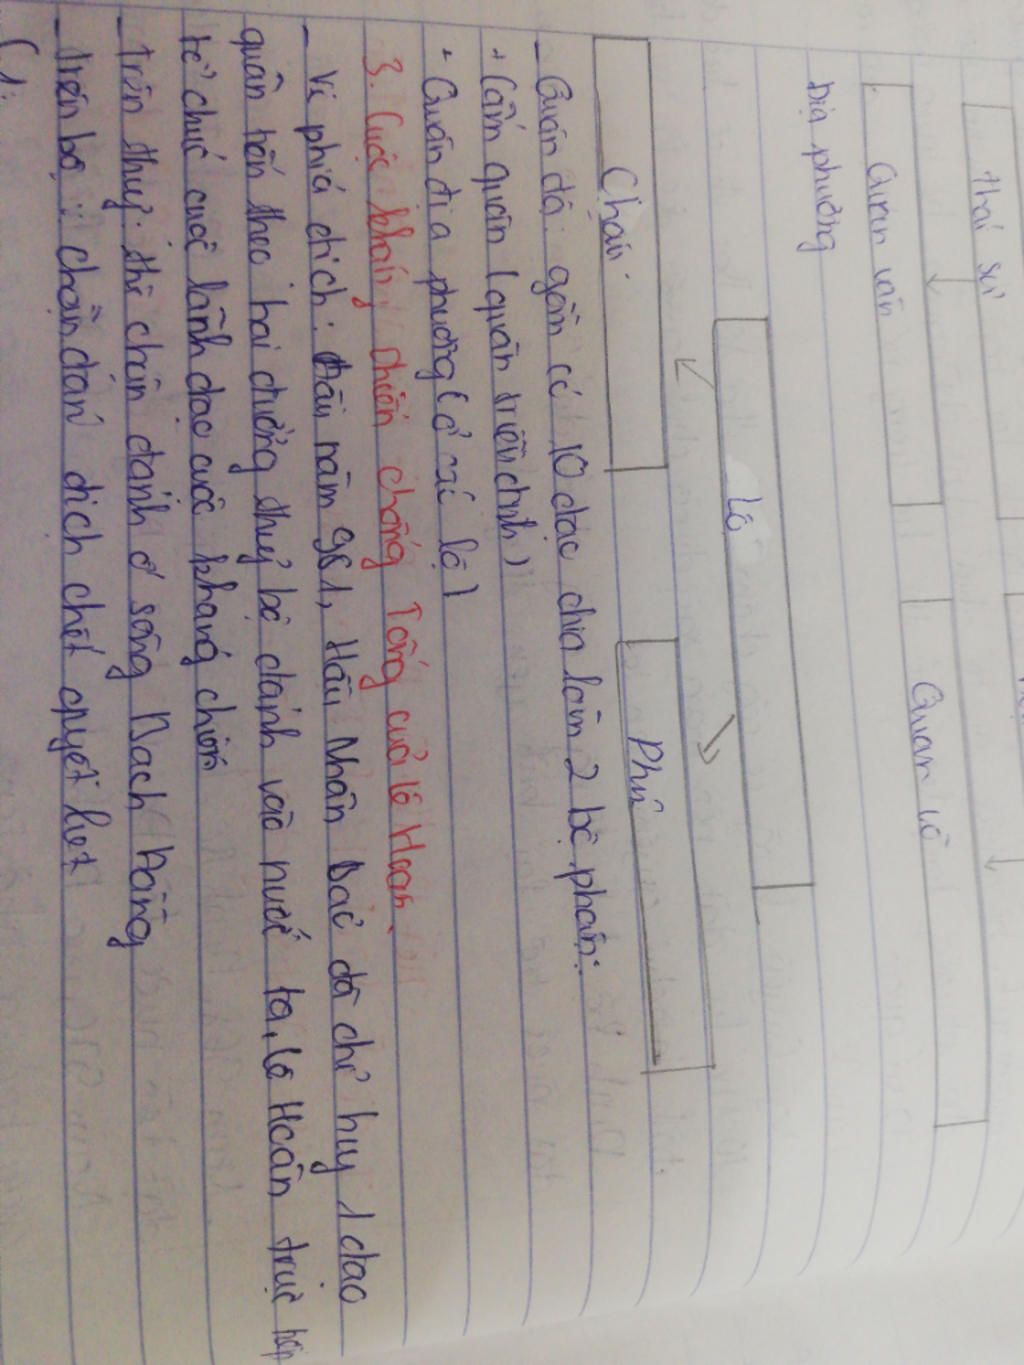 thái sư
Quan văn
Quan võ
Địa phương
Lộ
Châu
Phủ
- Quân đội: gồm có 10 đạo chia làm 2 bộ phận:
+ Cấm quân (quân triều đình)
+ Quân địa phương (ở các lộ)
3. Cuộc kháng chiến chống Tống của Lê Hoàn.
- Về phía địch: Đầu năm 981, Hầu Nhân Bảo đã chỉ huy 1 đạo
quân tiến theo hai đường thuỷ bộ đánh vào nước ta, Lê Hoàn trực tiếp
tổ chức cuộc lãnh đạo cuộc kháng chiến
- Trên thuỷ: thì chặn đánh ở sông Bạch Đằng
- Trên bộ: chặn đánh địch chết quyết liệt